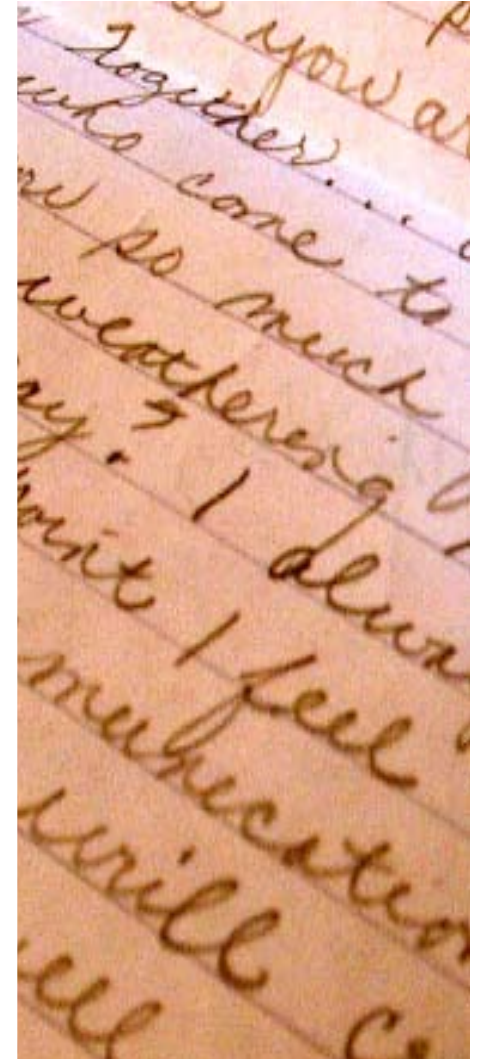 you
together...
who come to
so much
weathering
? I alwa
I feel
munication
will